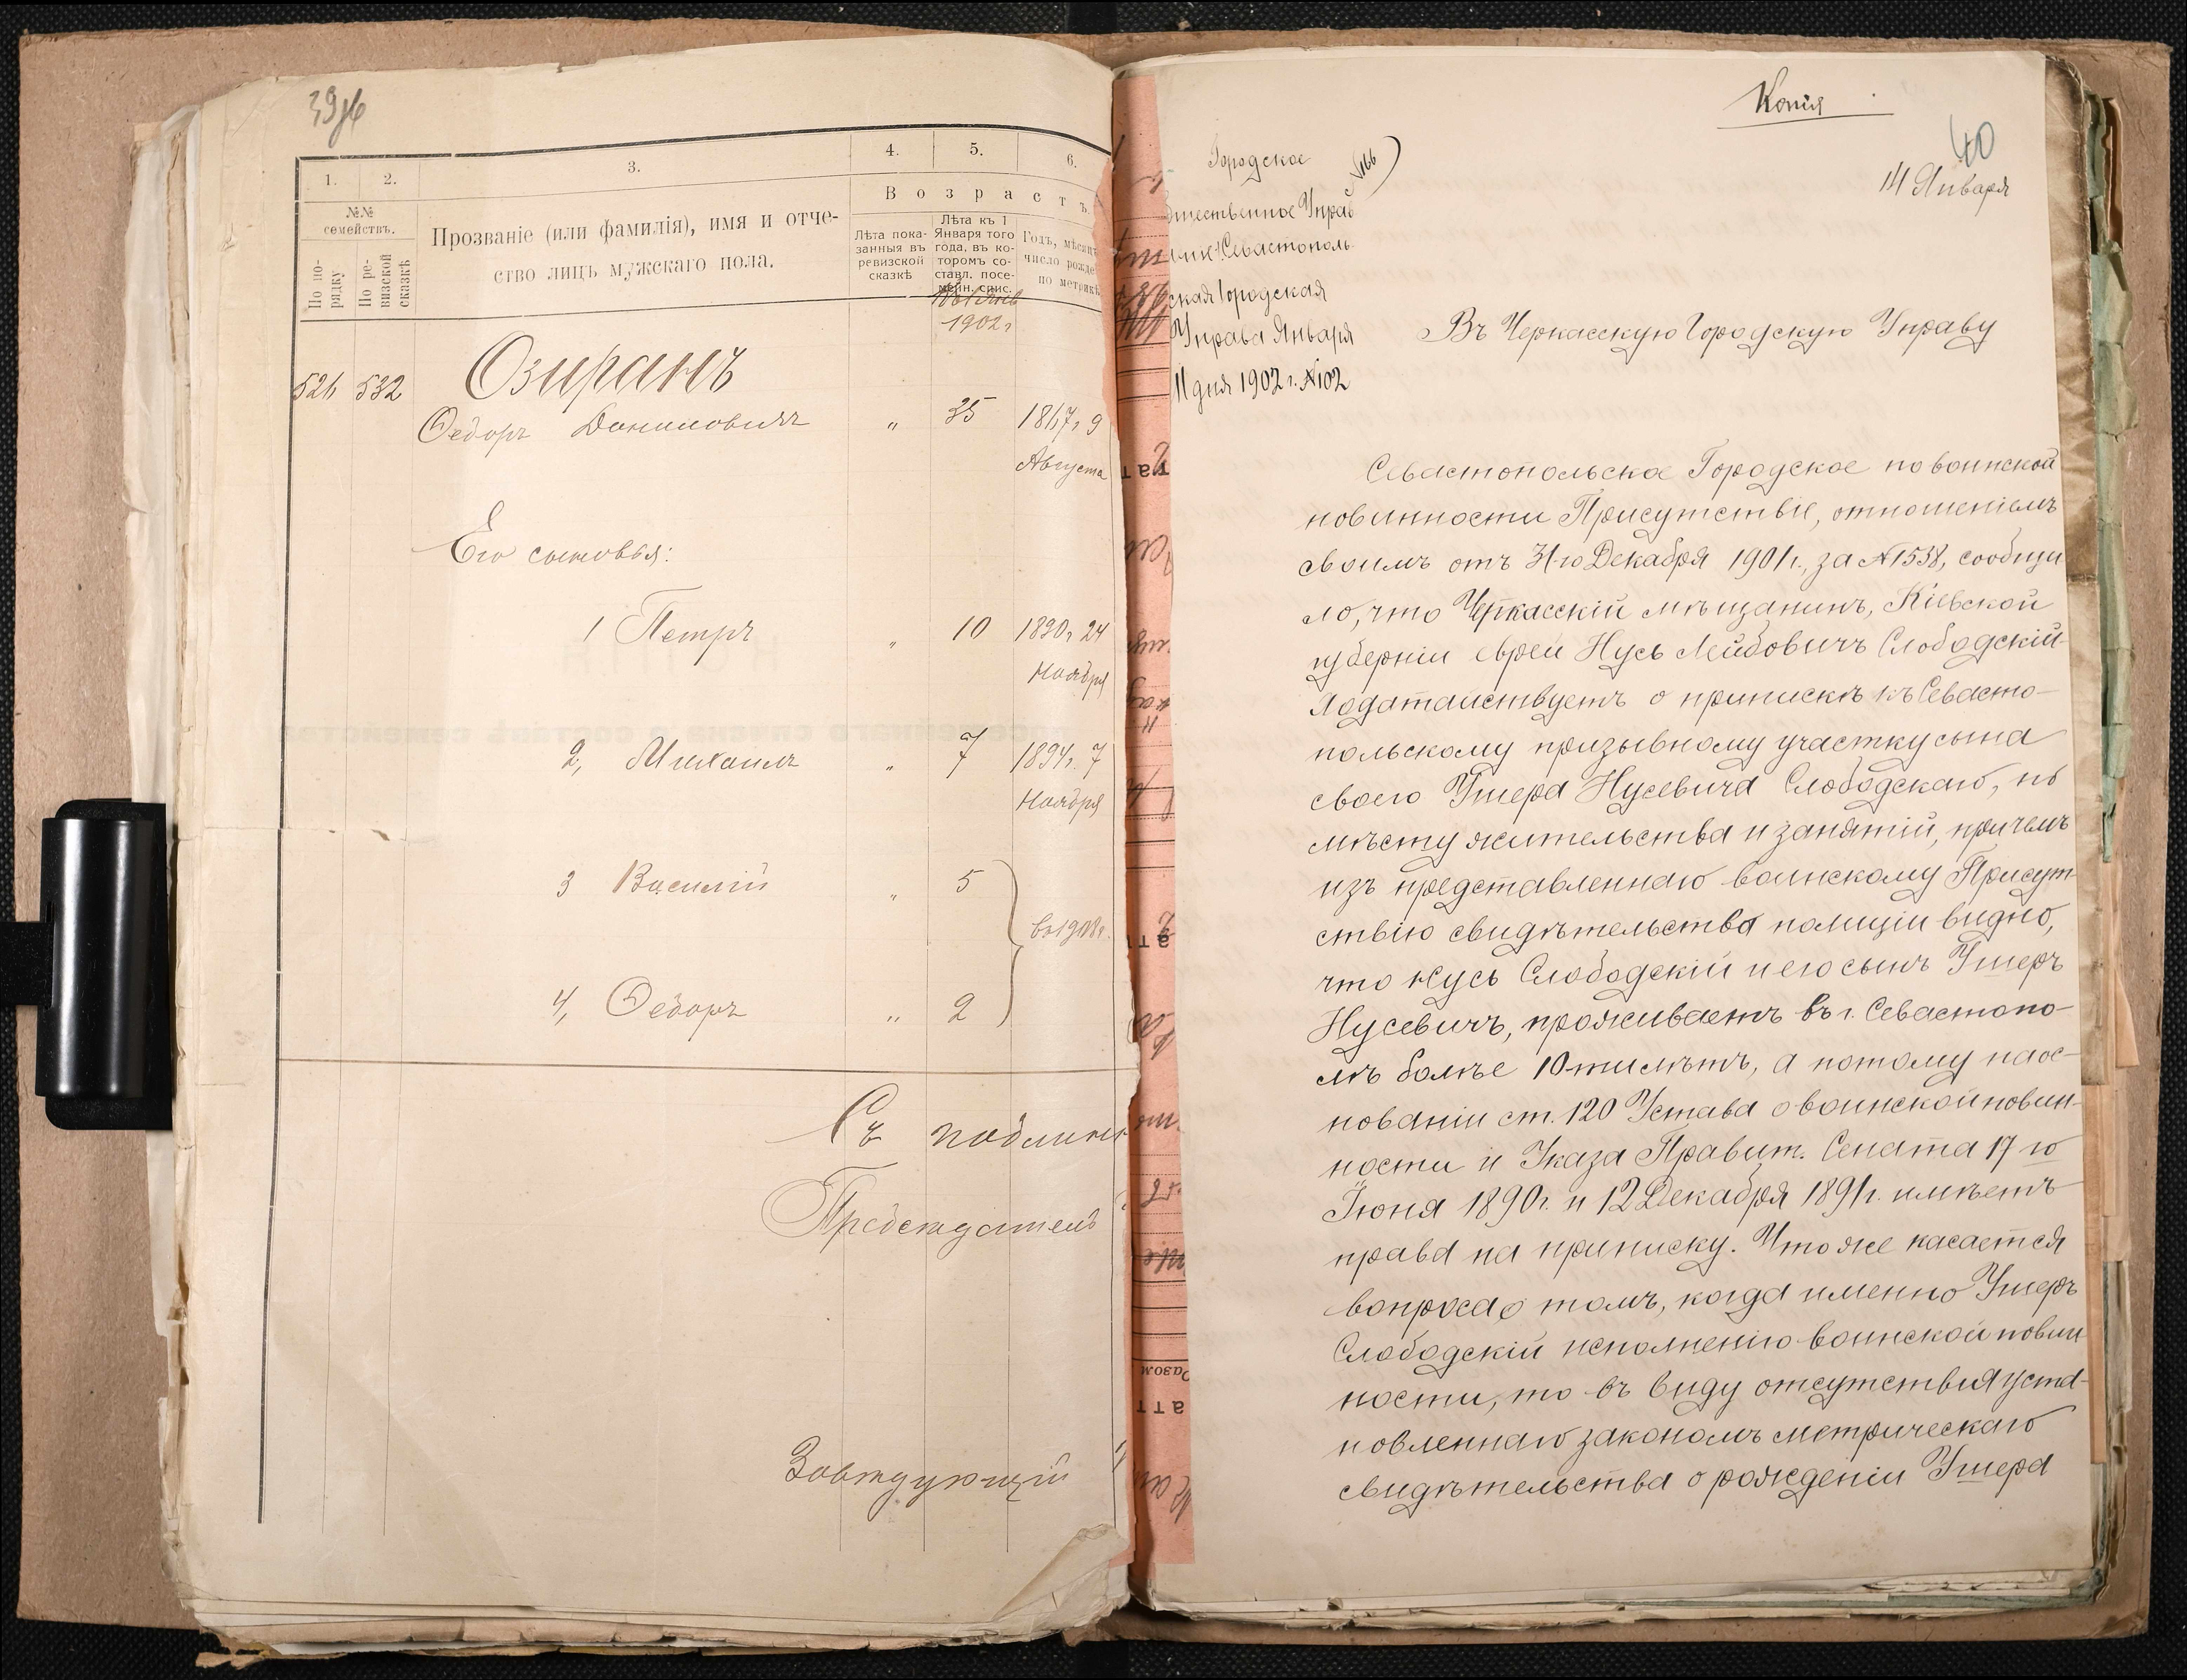 39об
1.
2.
3.
4.
5.
6.
№№
семействъ.
По по-
рядку
По ре-
визской
сказкѣ
Прозваніе (или фамилія), имя и отче-
ство лицъ мужскаго пола.
Возрастъ.
Лѣта пока-
занныя въ
ревизской
сказкѣ
Лѣта къ 1
Января того
года, въ ко-
торомъ со-
ставл. посе-
мейн. спис.
Годъ, мѣсяцъ
число рожде
по метрикѣ
1902 г
526 532 Озиранъ
Ѳедоръ Даниловичъ „ 35 1867 г 9
Августа
Его сыновья:
1 Петръ „ 10 1890 г 24
Ноября
2, Михаилъ „ 7 1894 г. 7
Ноября
3 Василій „ 5
4, Ѳедоръ „ 2
Съ подлинн
Предсѣдатель
Завѣдующій
Копія
40
14 Января
Городское
166
бщественное Управ
Севастополь
ская Городская
Управа Января
11 дня 1902 г. №102
Въ Черкасскую Городскую Управу
Севастопольское Городское по воинской
повинности Присутствіе, отношеніемъ
своимъ отъ 31-го Декабря 1901 г., за №1538, сообщи
ло, что Черкасскій мѣщанинъ, Кіевской
губерніи еврей Нусь Лейбовичъ Слободскій
ходатайствуетъ о припискѣ къ Севасто-
польскому призывному участку сына
своего Ушера Нусевича Слободскаго, по
мѣсту жительства и занятій, причемъ
изъ представленнаго воинскому Присут
ствію свидѣтельства полиціи видно,
что Нусь Слободскій и его сынъ Ушеръ
Нусевичъ, проживаетъ въ г. Севастопо-
лѣ болѣе 10-ти лѣтъ, а потому на ос-
нованіи ст. 120 Устава о воинской повин-
ности и Указа Правит. Сената 17 го
Іюня 1890 г. и 12 Декабря 1891 г. имѣетъ
права на приписку. Что же касается
вопроса о томъ, когда именно Ушеръ
Слободскій исполненію воинской повин
ности, то въ виду отсутствія уста-
новленнаго закономъ метрическаго
свидѣтельства о рожденіи Ушера